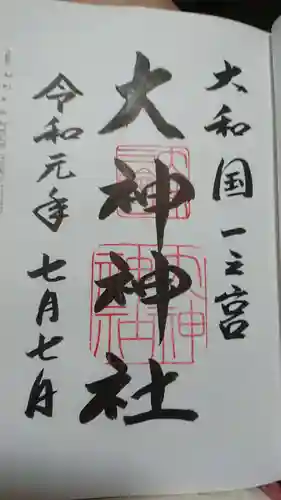 大和国一之宮
大神神社
令和元年
七月七日